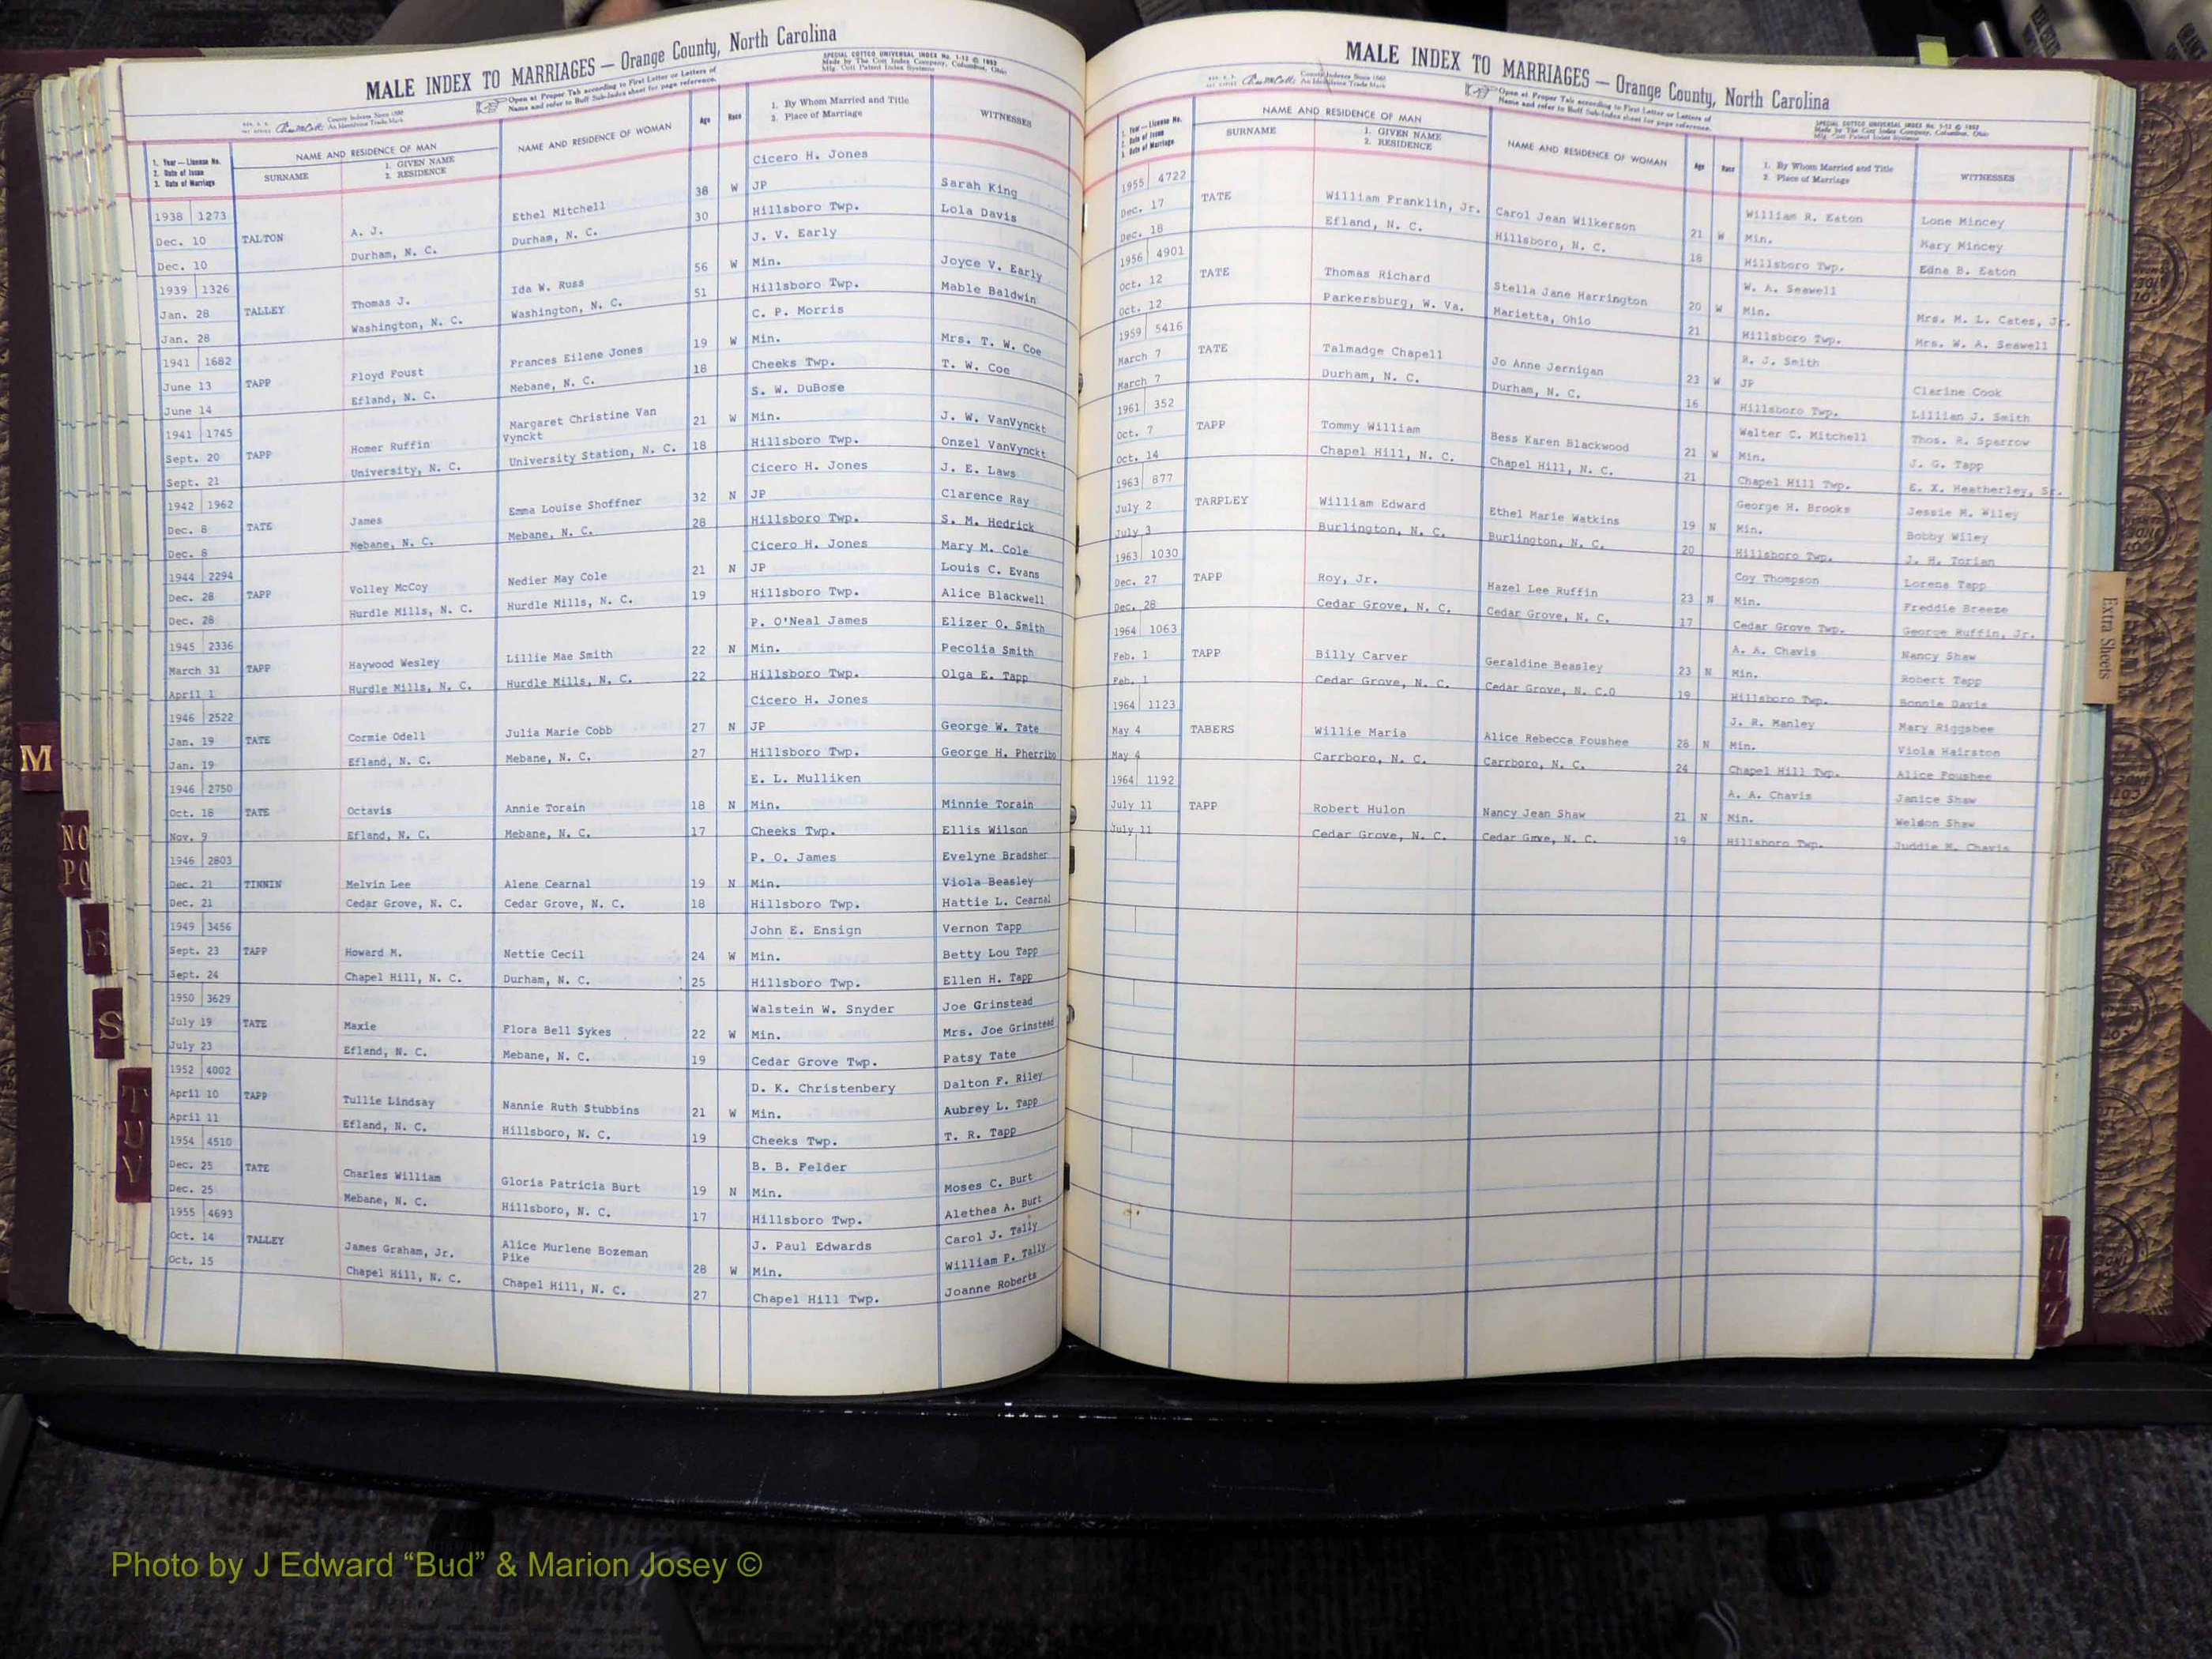 MALE INDEX TO MARRIAGES — Orange County, North Carolina
Open at Proper Tab according to First Letter or Letters of
Name and refer to Buff Sub-Index sheet for page reference.
SPECIAL COTTCO UNIVERSAL INDEX No. 1-12 © 1952
Made by The Cott Index Company, Columbus, Ohio
Mfg. Cott Patent Index Systems
County Indexes Since 1888
An Identifying Trade Mark
1. Year — License No.
2. Date of Issue
3. Date of Marriage
NAME AND RESIDENCE OF MAN
SURNAME
1. GIVEN NAME
2. RESIDENCE
NAME AND RESIDENCE OF WOMAN
Age
Race
1. By Whom Married and Title
2. Place of Marriage
WITNESSES
1938 1273 Cicero H. Jones
Dec. 10 TALTON A. J. Ethel Mitchell 38 W JP Sarah King
Dec. 10 Durham, N. C. Durham, N. C. 30 Hillsboro Twp. Lola Davis
1939 1326 J. V. Early
Jan. 28 TALLEY Thomas J. Ida W. Russ 56 W Min. Joyce V. Early
Jan. 28 Washington, N. C. Washington, N. C. 51 Hillsboro Twp. Mable Baldwin
1941 1682 C. P. Morris
June 13 TAPP Floyd Foust Frances Eilene Jones 19 W Min. Mrs. T. W. Coe
June 14 Efland, N. C. Mebane, N. C. 18 Cheeks Twp. T. W. Coe
1941 1745 Margaret Christine Van S. W. DuBose
Sept. 20 TAPP Homer Ruffin Vynckt 21 W Min. J. W. VanVynckt
Sept. 21 University, N. C. University Station, N. C. 18 Hillsboro Twp. Onzel VanVynckt
1942 1962 Cicero H. Jones J. E. Laws
Dec. 8 TATE James Emma Louise Shoffner 32 N JP Clarence Ray
Dec. 8 Mebane, N. C. Mebane, N. C. 28 Hillsboro Twp. S. M. Hedrick
1944 2294 Cicero H. Jones Mary M. Cole
Dec. 28 TAPP Volley McCoy Nedier May Cole 21 N JP Louis C. Evans
Dec. 28 Hurdle Mills, N. C. Hurdle Mills, N. C. 19 Hillsboro Twp. Alice Blackwell
1945 2336 P. O'Neal James Elizer O. Smith
March 31 TAPP Haywood Wesley Lillie Mae Smith 22 N Min. Pecolia Smith
April 1 Hurdle Mills, N. C. Hurdle Mills, N. C. 22 Hillsboro Twp. Olga E. Tapp
1946 2522 Cicero H. Jones
Jan. 19 TATE Cormie Odell Julia Marie Cobb 27 N JP George W. Tate
Jan. 19 Efland, N. C. Mebane, N. C. 27 Hillsboro Twp. George H. Pherribo
1946 2750 E. L. Mulliken
Oct. 18 TATE Octavis Annie Torain 18 N Min. Minnie Torain
Nov. 9 Efland, N. C. Mebane, N. C. 17 Cheeks Twp. Ellis Wilson
1946 2803 P. O. James Evelyne Bradsher
Dec. 21 TINNIN Melvin Lee Alene Cearnal 19 N Min. Viola Beasley
Dec. 21 Cedar Grove, N. C. Cedar Grove, N. C. 18 Hillsboro Twp. Hattie L. Cearnal
1949 3456 John E. Ensign Vernon Tapp
Sept. 23 TAPP Howard M. Nettie Cecil 24 W Min. Betty Lou Tapp
Sept. 24 Chapel Hill, N. C. Durham, N. C. 25 Hillsboro Twp. Ellen H. Tapp
1950 3629 Walstein W. Snyder Joe Grinstead
July 19 TATE Maxie Flora Bell Sykes 22 W Min. Mrs. Joe Grinstead
July 23 Efland, N. C. Mebane, N. C. 19 Cedar Grove Twp. Patsy Tate
1952 4002 D. K. Christenbery Dalton F. Riley
April 10 TAPP Tullie Lindsay Nannie Ruth Stubbins 21 W Min. Aubrey L. Tapp
April 11 Efland, N. C. Hillsboro, N. C. 19 Cheeks Twp. T. R. Tapp
1954 4510 B. B. Felder
Dec. 25 TATE Charles William Gloria Patricia Burt 19 N Min. Moses C. Burt
Dec. 25 Mebane, N. C. Hillsboro, N. C. 17 Hillsboro Twp. Alethea A. Burt
1955 4693 Alice Murlene Bozeman J. Paul Edwards Carol J. Tally
Oct. 14 TALLEY James Graham, Jr. Pike 28 W Min. William P. Tally
Oct. 15 Chapel Hill, N. C. Chapel Hill, N. C. 27 Chapel Hill Twp. Joanne Roberts
MALE INDEX TO MARRIAGES — Orange County, North Carolina
County Indexes Since 1888
An Identifying Trade Mark
Open at Proper Tab according to First Letter or Letters of
Name and refer to Buff Sub-Index sheet for page reference.
SPECIAL COTTCO UNIVERSAL INDEX No. 1-12 © 1952
Made by The Cott Index Company, Columbus, Ohio
Mfg. Cott Patent Index Systems
1. Year — License No.
2. Date of Issue
3. Date of Marriage
NAME AND RESIDENCE OF MAN
SURNAME
1. GIVEN NAME
2. RESIDENCE
NAME AND RESIDENCE OF WOMAN
Age
Race
1. By Whom Married and Title
2. Place of Marriage
WITNESSES
1955 4722 William R. Eaton Lone Mincey
Dec. 17 TATE William Franklin, Jr. Carol Jean Wilkerson 21 W Min. Mary Mincey
Dec. 18 Efland, N. C. Hillsboro, N. C. 18 Hillsboro Twp. Edna B. Eaton
1956 4901 W. A. Seawell
Oct. 12 TATE Thomas Richard Stella Jane Harrington 20 W Min. Mrs. M. L. Cates, Jr.
Oct. 12 Parkersburg, W. Va. Marietta, Ohio 21 Hillsboro Twp. Mrs. W. A. Seawell
1959 5416 R. J. Smith
March 7 TATE Talmadge Chapell Jo Anne Jernigan 23 W JP Clarine Cook
March 7 Durham, N. C. Durham, N. C. 16 Hillsboro Twp. Lillian J. Smith
1961 352 Walter C. Mitchell Thos. R. Sparrow
Oct. 7 TAPP Tommy William Bess Karen Blackwood 21 W Min. J. G. Tapp
Oct. 14 Chapel Hill, N. C. Chapel Hill, N. C. 21 Chapel Hill Twp. E. X. Heatherley, Sr.
1963 877 George H. Brooks Jessie M. Wiley
July 2 TARPLEY William Edward Ethel Marie Watkins 19 N Min. Bobby Wiley
July 3 Burlington, N. C. Burlington, N. C. 20 Hillsboro Twp. J. H. Torian
1963 1030 Coy Thompson Lorena Tapp
Dec. 27 TAPP Roy, Jr. Hazel Lee Ruffin 23 N Min. Freddie Breeze
Dec. 28 Cedar Grove, N. C. Cedar Grove, N. C. 17 Cedar Grove Twp. George Ruffin, Jr.
1964 1063 A. A. Chavis Nancy Shaw
Feb. 1 TAPP Billy Carver Geraldine Beasley 23 N Min. Robert Tapp
Feb. 1 Cedar Grove, N. C. Cedar Grove, N. C.O 19 Hillsboro Twp. Bonnie Davis
1964 1123 J. R. Manley Mary Riggsbee
May 4 TABERS Willie Maria Alice Rebecca Foushee 28 N Min. Viola Hairston
May 4 Carrboro, N. C. Carrboro, N. C. 24 Chapel Hill Twp. Alice Foushee
1964 1192 A. A. Chavis Janice Shaw
July 11 TAPP Robert Hulon Nancy Jean Shaw 21 N Min. Weldon Shaw
July 11 Cedar Grove, N. C. Cedar Grove, N. C. 19 Hillsboro Twp. Juddie M. Chavis
M
NO
PQ
R
S
T
U
V
Extra Sheets
Photo by J Edward “Bud” & Marion Josey ©